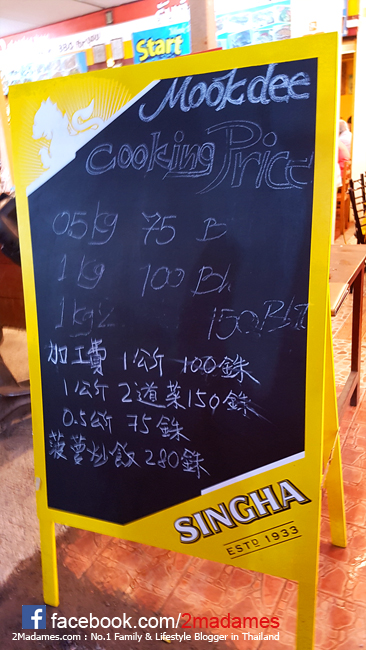 Start
Mookdee
Cooking Price
05kg 75 B
1 kg 100 Bh
1 kg 2 150 Bht
加工費 1公斤 100銖
1公斤 2道菜150銖
0.5公斤 75銖
菠蘿炒飯 280銖
SINGHA
ESTD 1933
facebook.com/2madames
2Madames.com : No.1 Family & Lifestyle Blogger in Thailand